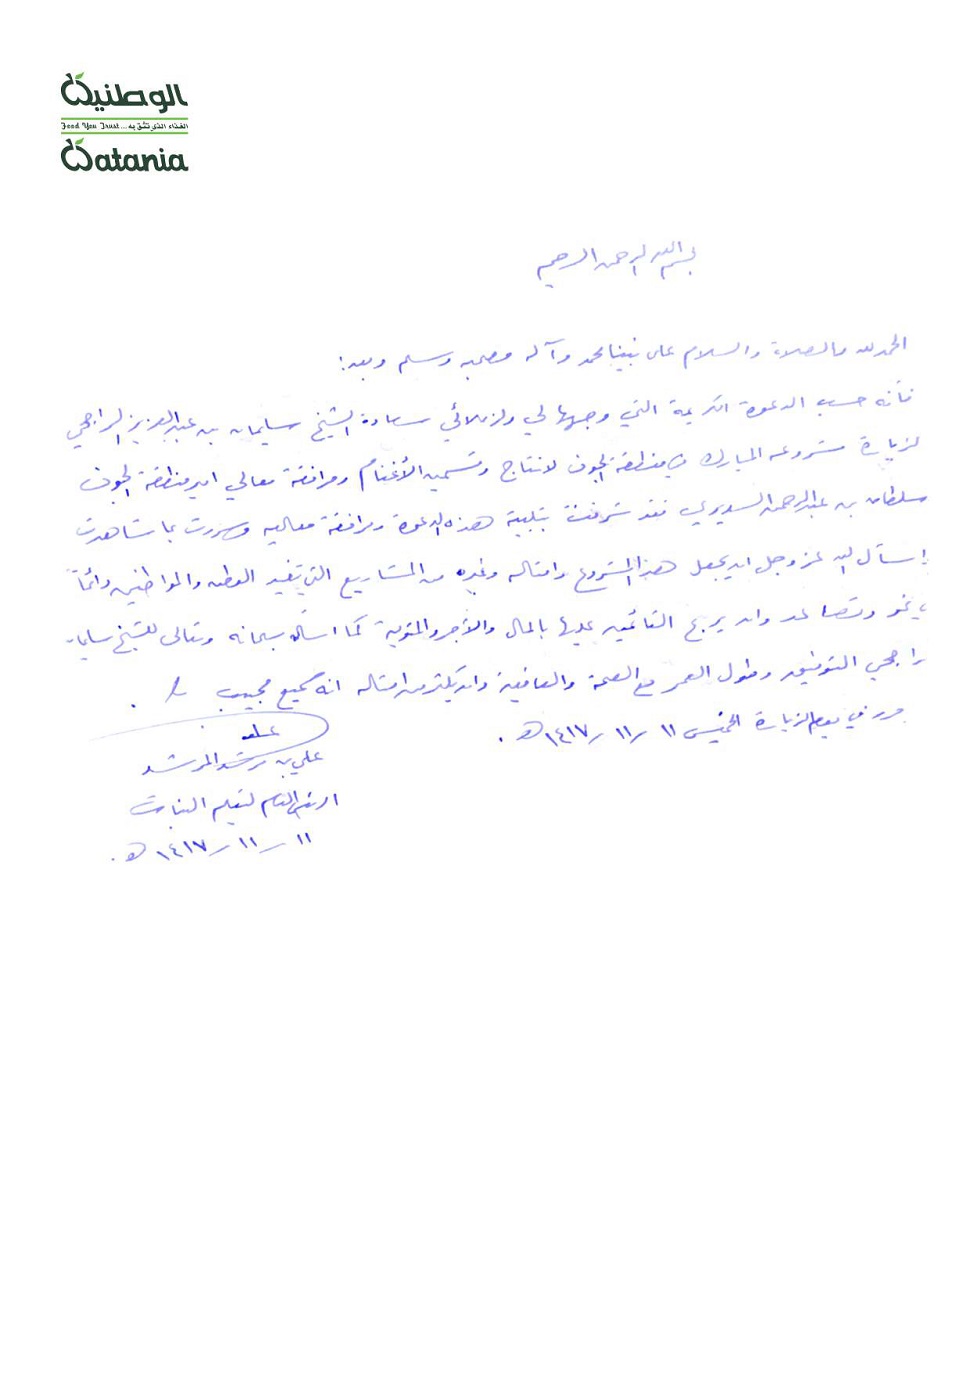 الوطنية
Food You Trust ... الغذاء الذي تثق به
Watania
بسم الله الرحمن الرحيم
الحمد لله والصلاة والسلام على نبينا محمد وآله وصحبه وسلم وبعد:
فأنه حسب الدعوة الكريمة التي وجهها لي ولزملائي سعادة الشيخ سليمان بن عبدالعزيز الراجحي
لزيارة مشروعه المبارك في منطقة الجوف لانتاج وتسمين الأغنام ومرافقة معالي امير منطقة الجوف
سلطان بن عبدالرحمن السديري فقد تشرفت بتلبية هذه الدعوة ومرافقة معاليه وسررت بما شاهدت
اسأل الله عز وجل ان يجعل هذا المشروع وامثاله وغيره من المشاريع التي تفيد الوطن والمواطنين دائماً
في نمو وتصاعد وان يربح القائمين عليها بالمال والأجر والمثوبة كما اسأله سبحانه وتعالى للشيخ سليمان
راجحي التوفيق وطول العمر مع الصحة والعافية وان يكثر من امثاله انه سميع مجيب
حرر في يوم الزيارة الخميس ١١ / ١١ / ١٤١٧هـ .
علي بن مرشد المرشد
الرئيس العام لتعليم البنات
١١ / ١١ / ١٤١٧هـ .